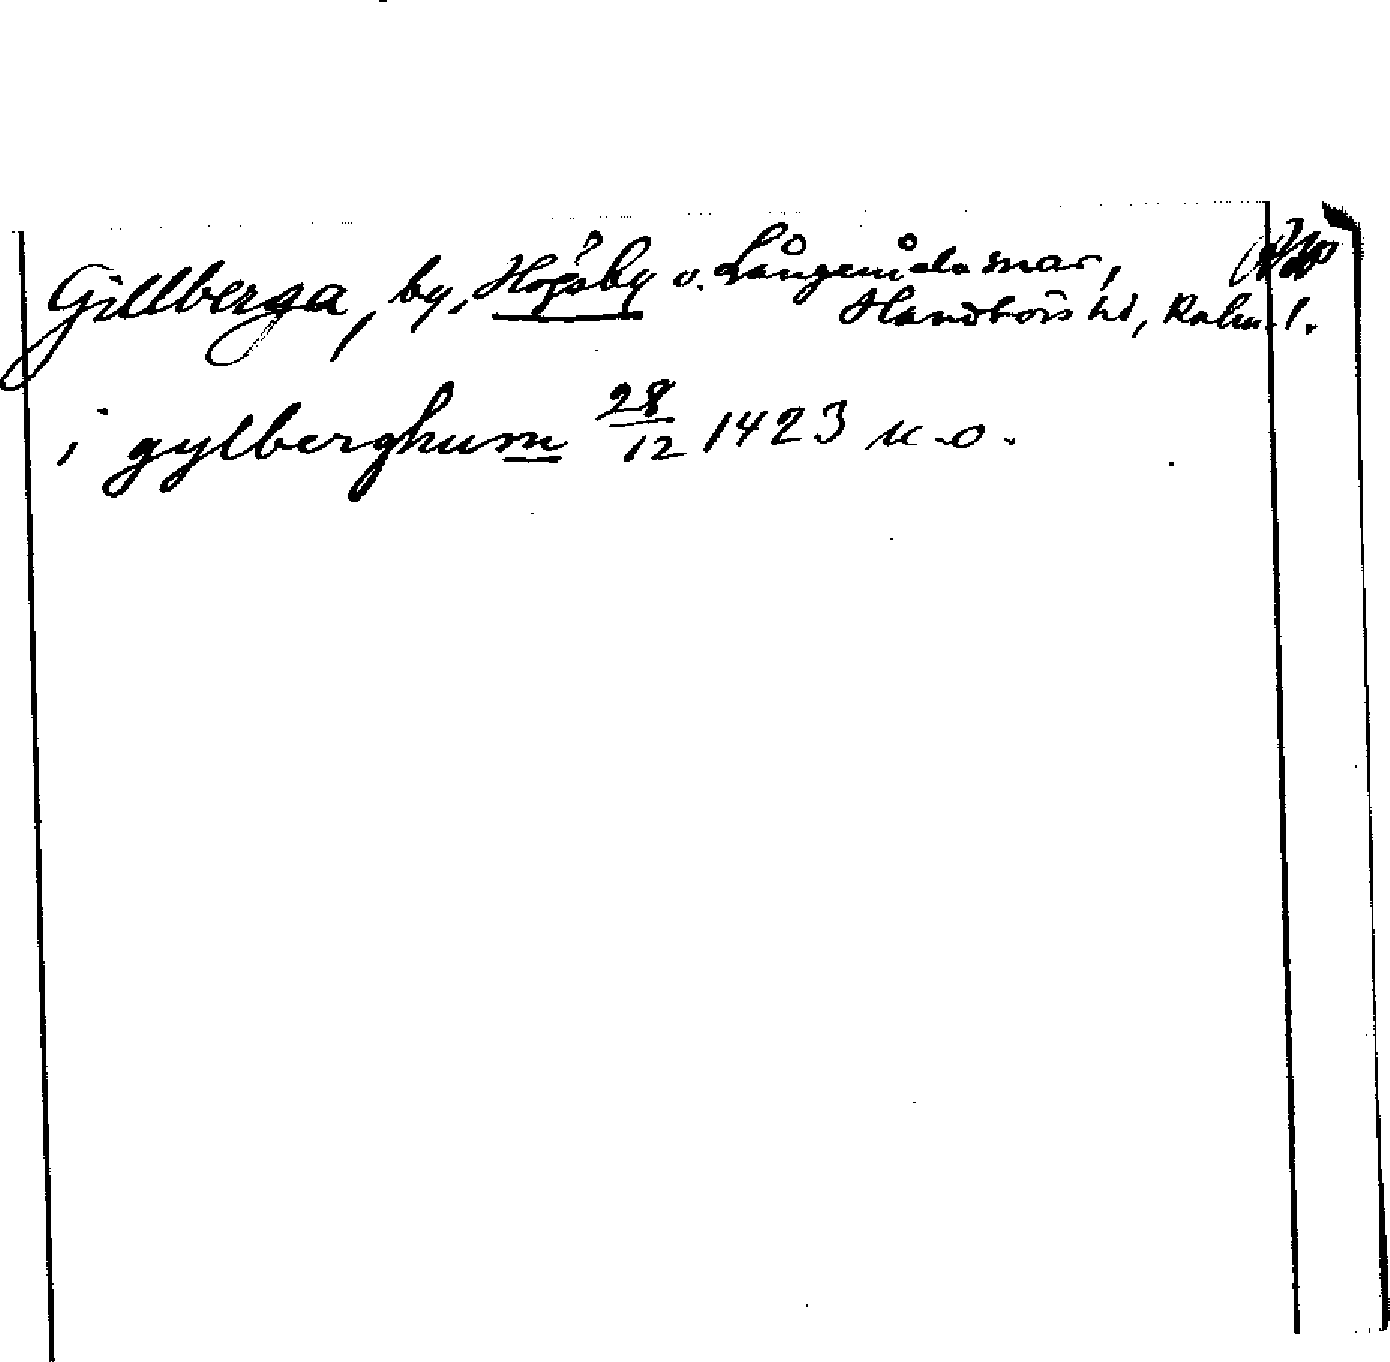 Gillberga, by, Högsby o. Långemåla snar,
Handbörs hd, Kalm. l.
i gylberghum 28/12 1423 u.o.